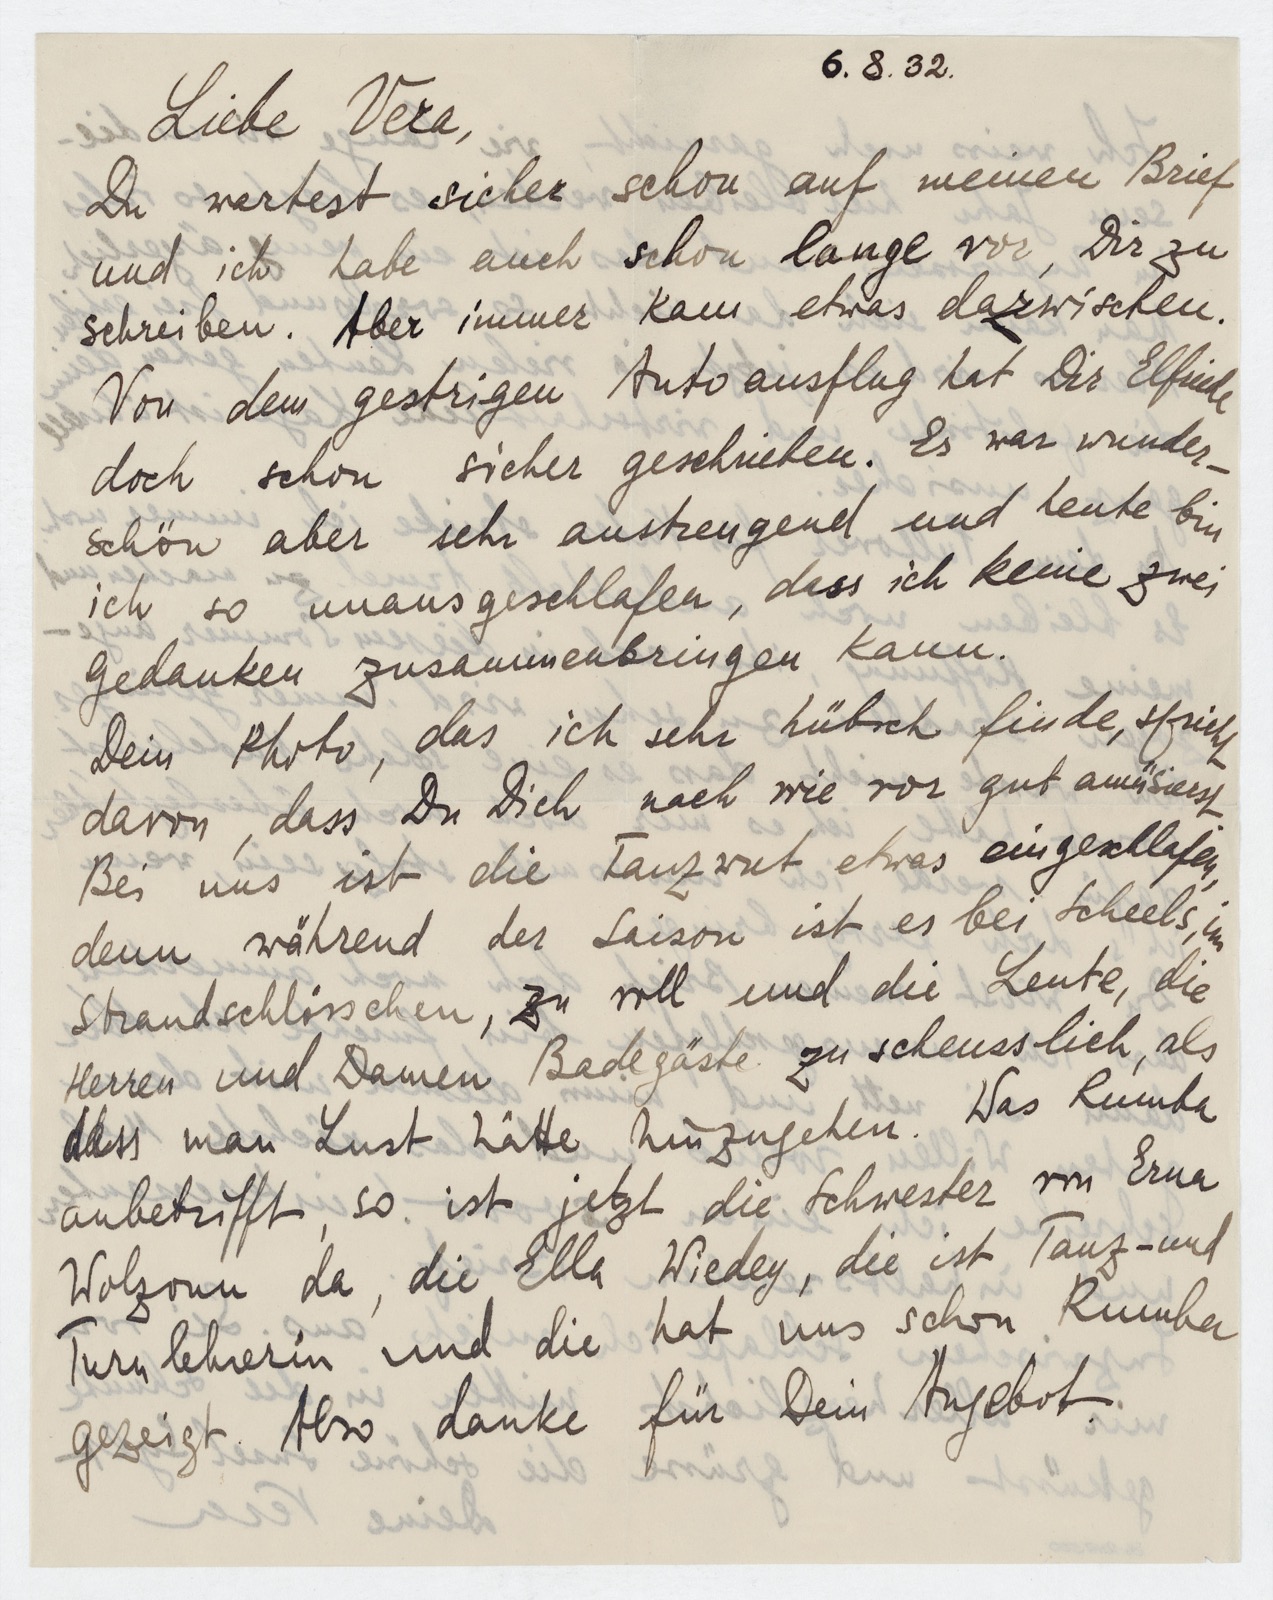 6. 8. 32.
Liebe Vera,
Du wartest sicher schon auf meinen Brief
und ich habe auch schon lange vor, Dir zu
schreiben. Aber immer kam etwas dazwischen.
Von dem gestrigen Autoausflug hat Dir Elfriede
doch schon sicher geschrieben. Es war wunder-
schön aber sehr anstrengend und heute bin
ich so unausgeschlafen, dass ich keine zwei
Gedanken zusammenbringen kann.
Dein Photo, das ich sehr hübsch finde, spricht
davon, dass Du Dich nach wie vor gut amüsierst.
Bei uns ist die Tanzwut etwas eingeschlafen,
denn während der Saison ist es bei Scheels, im
Strandschlösschen, zu voll und die Leute, die
Herren und Damen Badegäste zu scheusslich, als
dass man Lust hätte hinzugehen. Was Rumba
anbetrifft, so ist jetzt die Schwester von Erna
Wolzonn da, die Ella Wiedey, die ist Tanz- und
Turnlehrerin und die hat uns schon Rumba
gezeigt. Also danke für Dein Angebot.